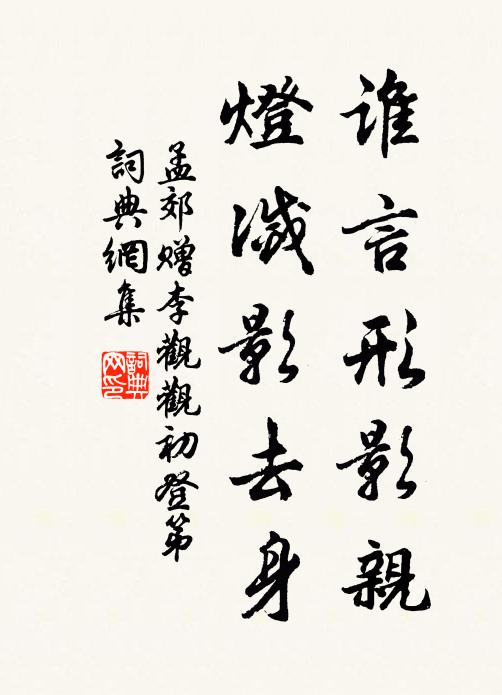 誰言形影親
燈滅影去身
孟郊贈李觀觀初登第
詞典網集
詞典網印